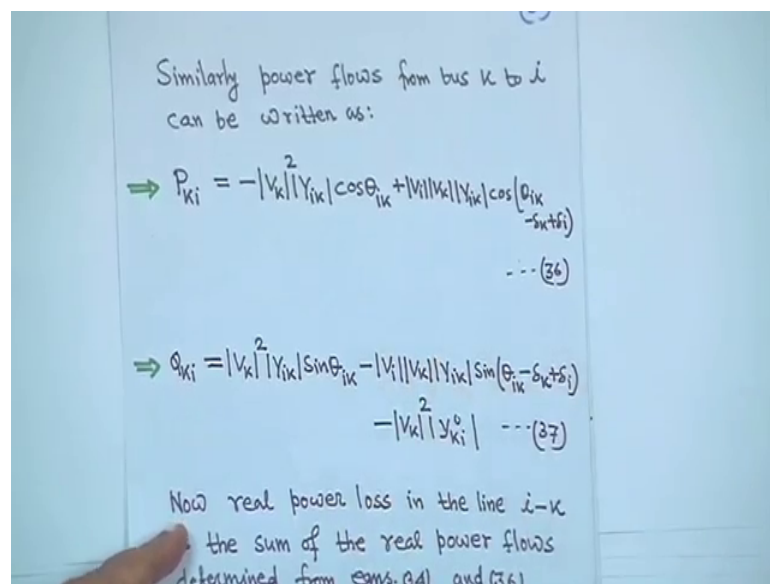 Similarly power flows from bus k to i
can be written as:
⇒ P_Ki = -|V_K|²|Y_iK| cosθ_iK + |V_i||V_K||Y_iK| cos(θ_iK
-δ_K+δ_i)
---(36)
⇒ Q_Ki = |V_K|²|Y_iK| sinθ_iK - |V_i||V_K||Y_iK| sin(θ_iK - δ_K+δ_i)
-|V_K|²|y⁰_Ki| ---(37)
Now real power loss in the line i-k
the sum of the real power flows
determined from eqns. (34) and (36)